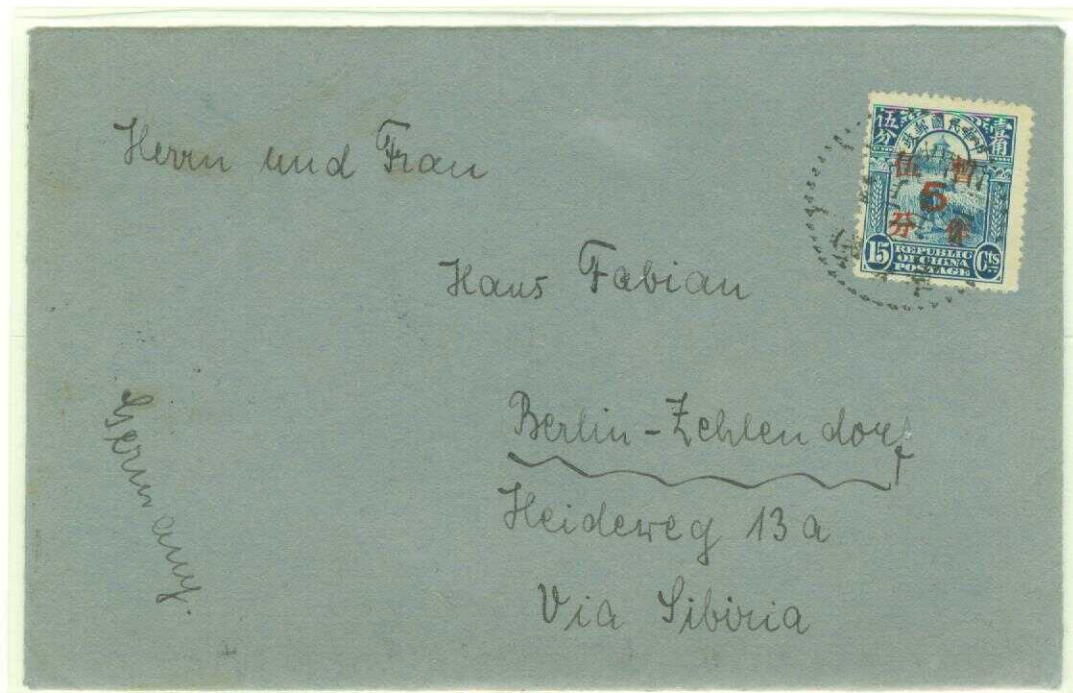 Herrn und Frau
Hans Fabian
Berlin-Zehlendorf
Heideweg 13a
Via Sibiria
Germany.
中華民國郵政
伍分
壹角
暫
伍
5
作
分
15
REPUBLIC
OF CHINA
POSTAGE
Cts